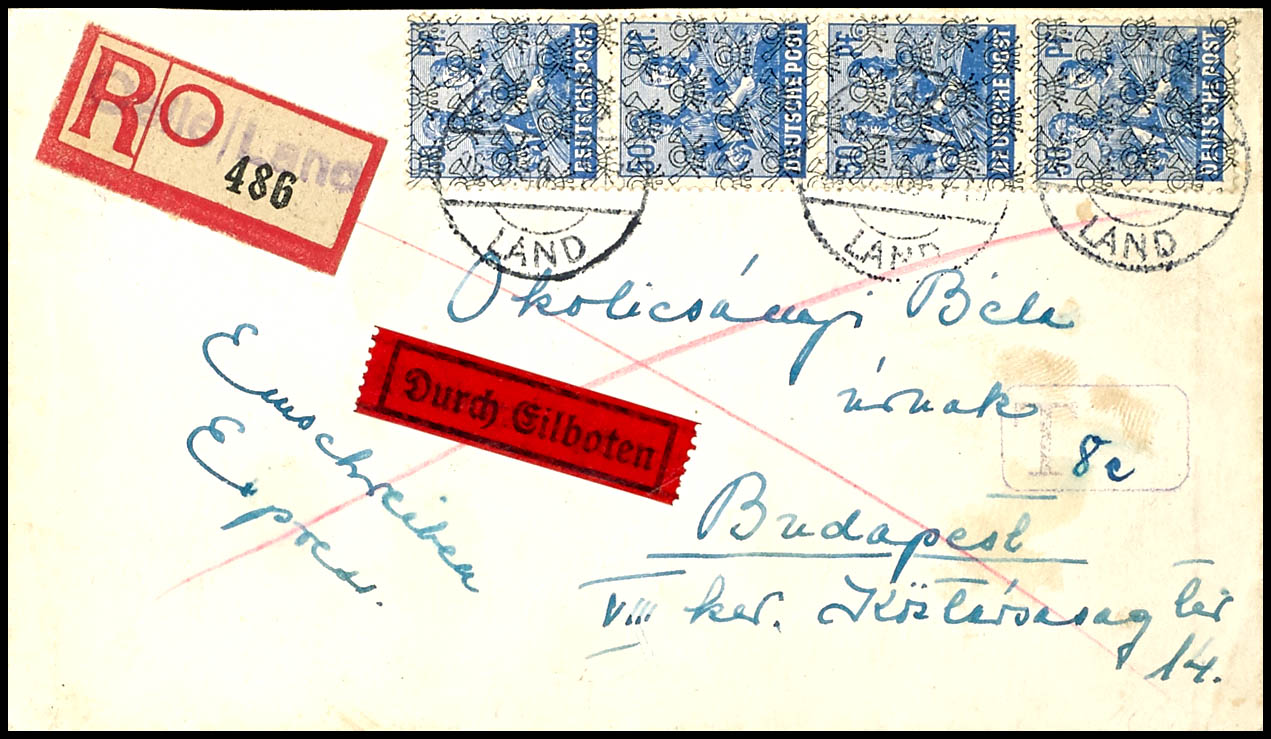 R
486
50 Pf. DEUTSCHE POST
50 Pf. DEUTSCHE POST
50 Pf. DEUTSCHE POST
50 Pf. DEUTSCHE POST
LAND
LAND
LAND
Okolicsányi Béla
úrnak
T 8c
Durch Eilboten
Einschreiben
Express.
Budapest
VIII ker. Köztársaság tér
14.